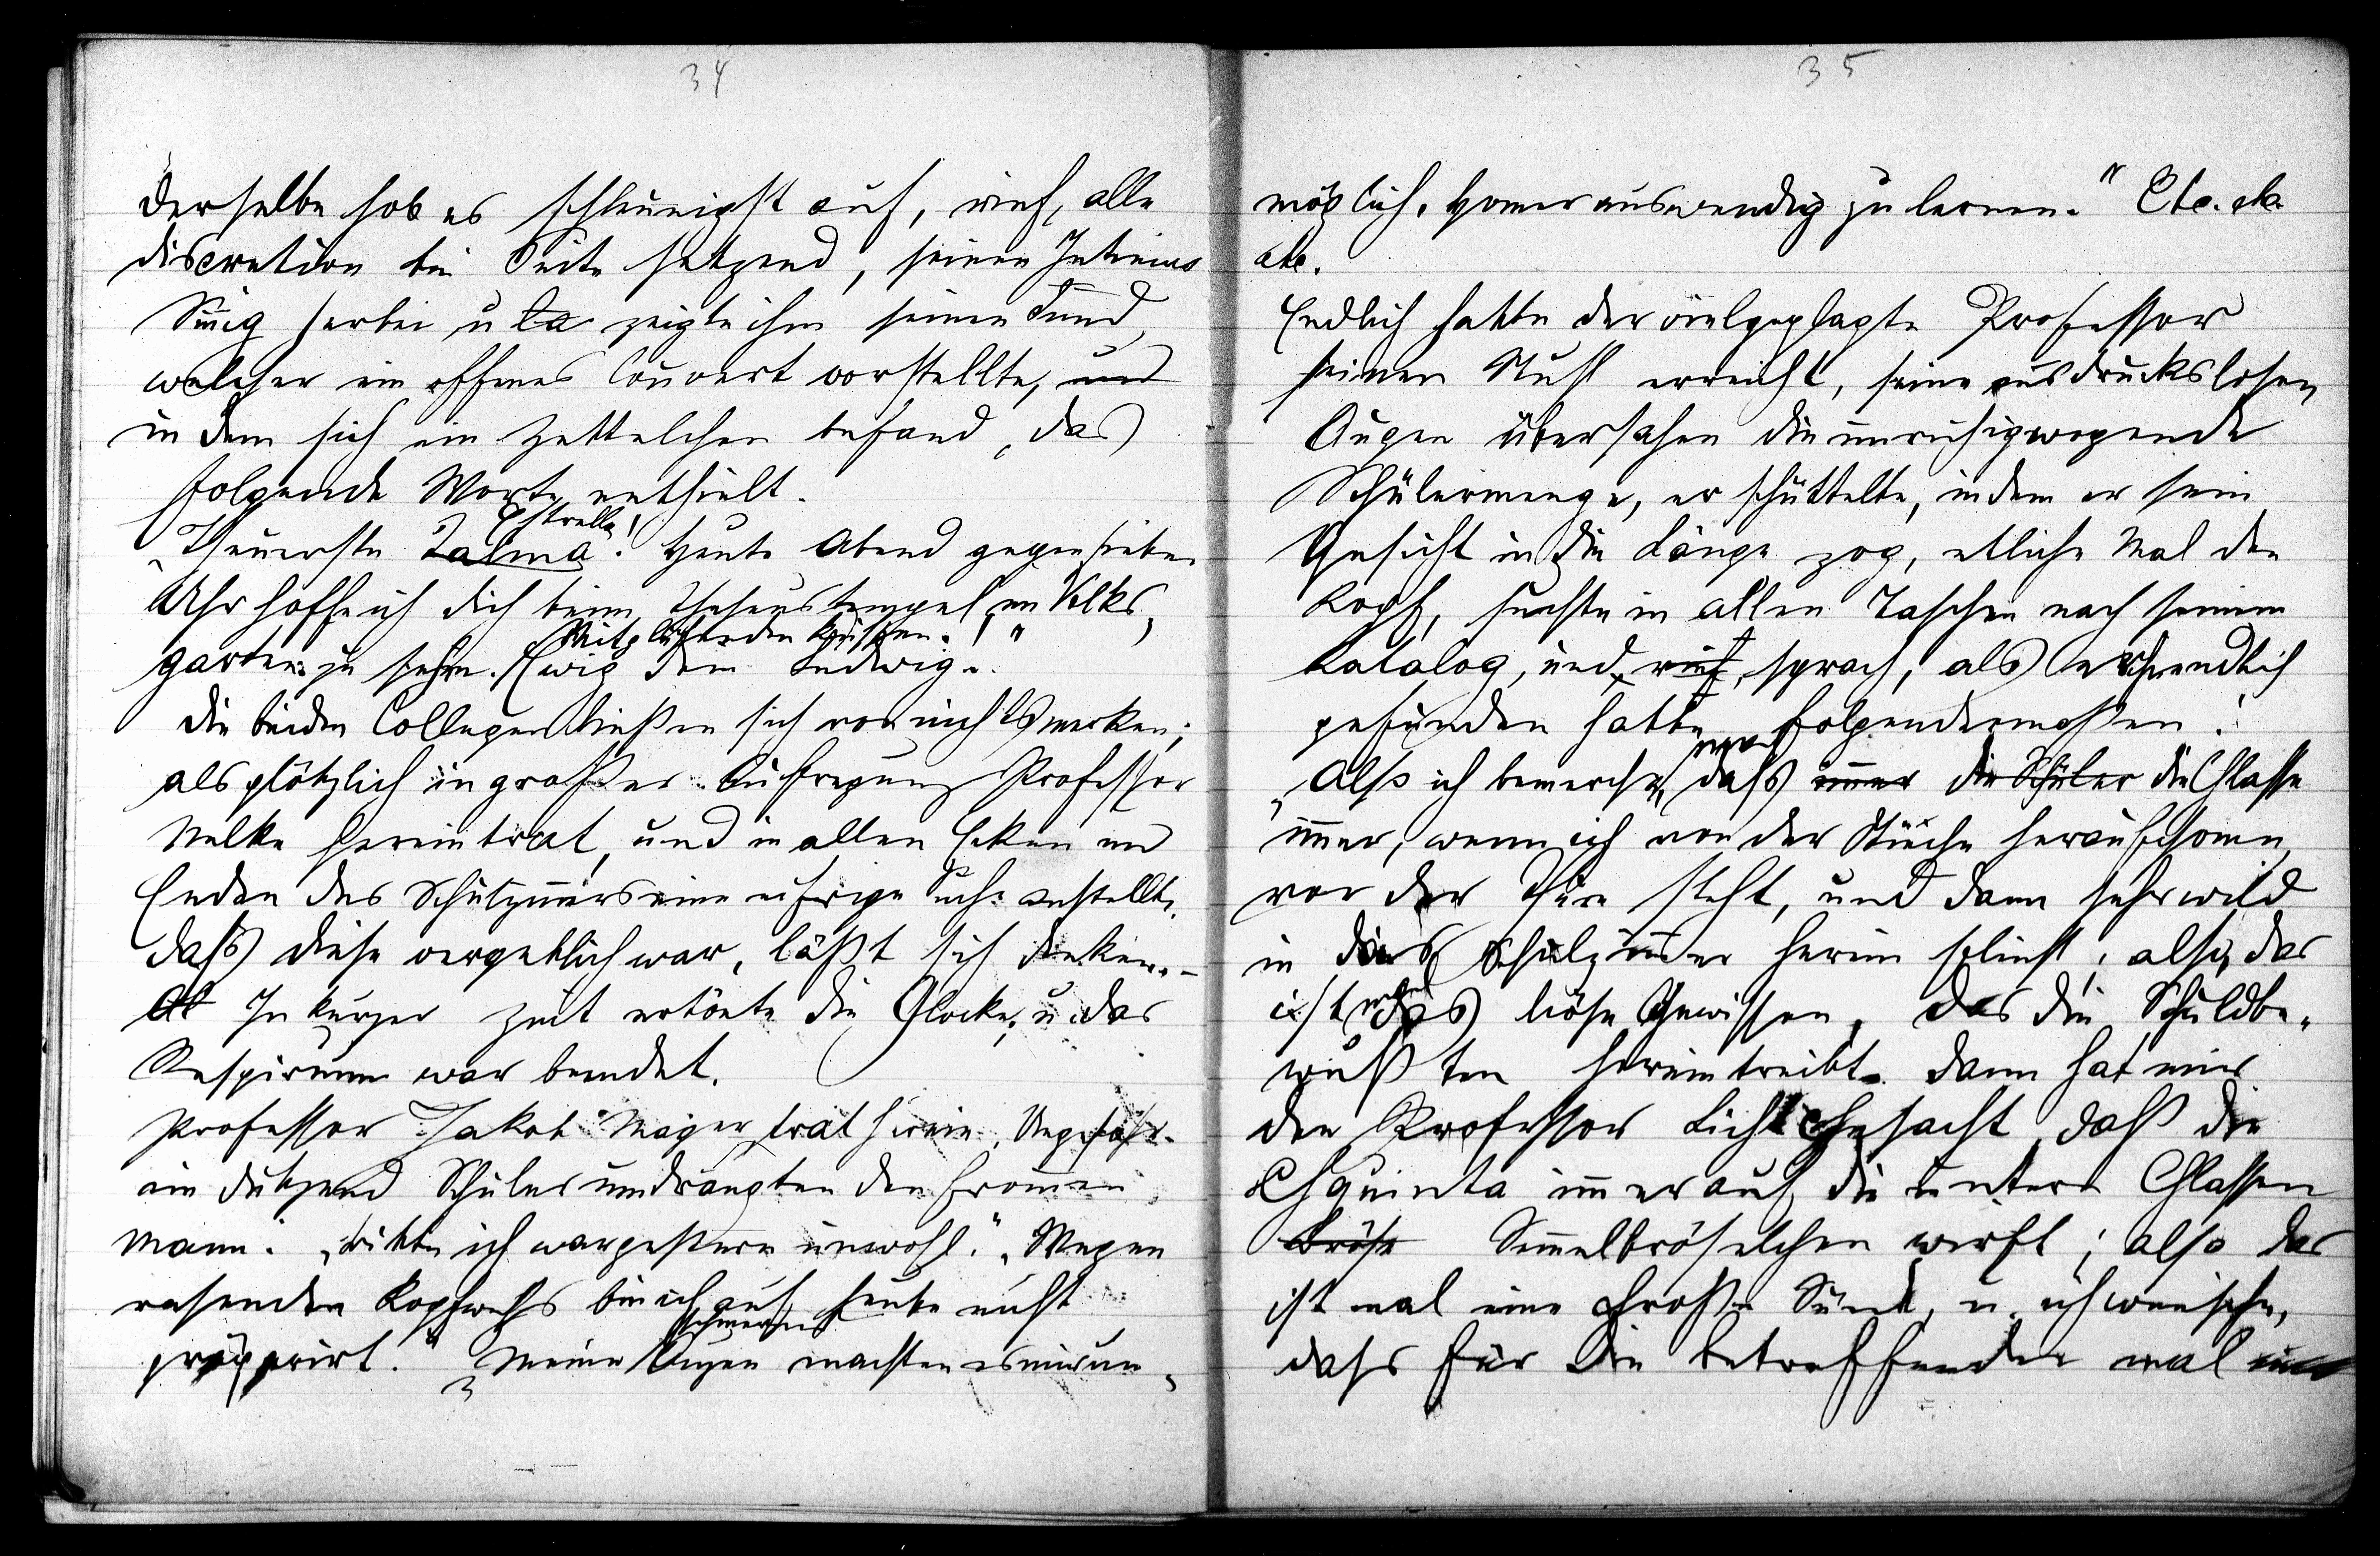 34
derselbe hob es schleunigst auf, rief, alle
discretion bei Seite setzend, seinen Intimus
Sinig herbei u la zeigte ihm seinen Fund,
welcher ein offenes Couvert vorstellte, und
in dem sich ein Zettelchen befand, das
folgende Worte enthielt.
Estrella!
„Theuerste Zalma“! Heute Abend gegen sieben
Uhr hoffe ich dich beim Theseustempel im Volks„
Mit glühenden Küssen.
garten zu sehn. Ewig Dein Ludwig.“
Die beiden Collegen ließen sich von nichts merken;
als plötzlich in großer Aufregung Professor
Nelke hereintrat, und in allen Ecken und
Enden des Schulzimmers eine eifrige Suche anstellte.
Daß diese vergeblich war, läßt sich denken.–
Al In kurzer Zeit ertönte die Glocke, u. das
Respirium war beendet.
Professor Jakob Mager trat herein. Ungefähr
ein Dutzend Schüler umdrängten den frommen
Mann: „Bitte ich war gestern unwohl.“ „Wegen
rasenden Kopfwehs bin ich auf heute nicht
schmerzen
präpparirt.“ „Meine Augen machten es mir un„
35
möglich, Homer auswendig zu lernen.“ Etc. etc.
etc.
Endlich hatte der vielgeplagte Professor
seinen Stuhl erreicht, seine ausdruckslosen
Augen übersahen die unruhigwogende
Schülermenge, er schüttelte, indem er sein
Gesicht in die Länge zog, etliche Mal den
Kopf, suchte in allen Taschen nach seinem
Katalog, und rief, sprach, als er ihn endlich
gefunden hatte folgendermaßen:
„Alss ich bemerche, daß immer die Schüler die Chlasse
immer, wenn ich von der Stieche heraufchomm,
vor der Thüre steht, und dann sehr wild
in das Schulzimmer herein flieht; also, das
ist das böse Gewissen, das die Schuldbe„
wußten hereintreibt. Dann hat mir
der Professor Licht chesacht, daß die
Chquinta immer auf die untere Chlassen
Brös Semmelbröselchen wirft; also das
ist mal eine chroße Sünd, u. ich wünsche,
dass für die betreffenden mal